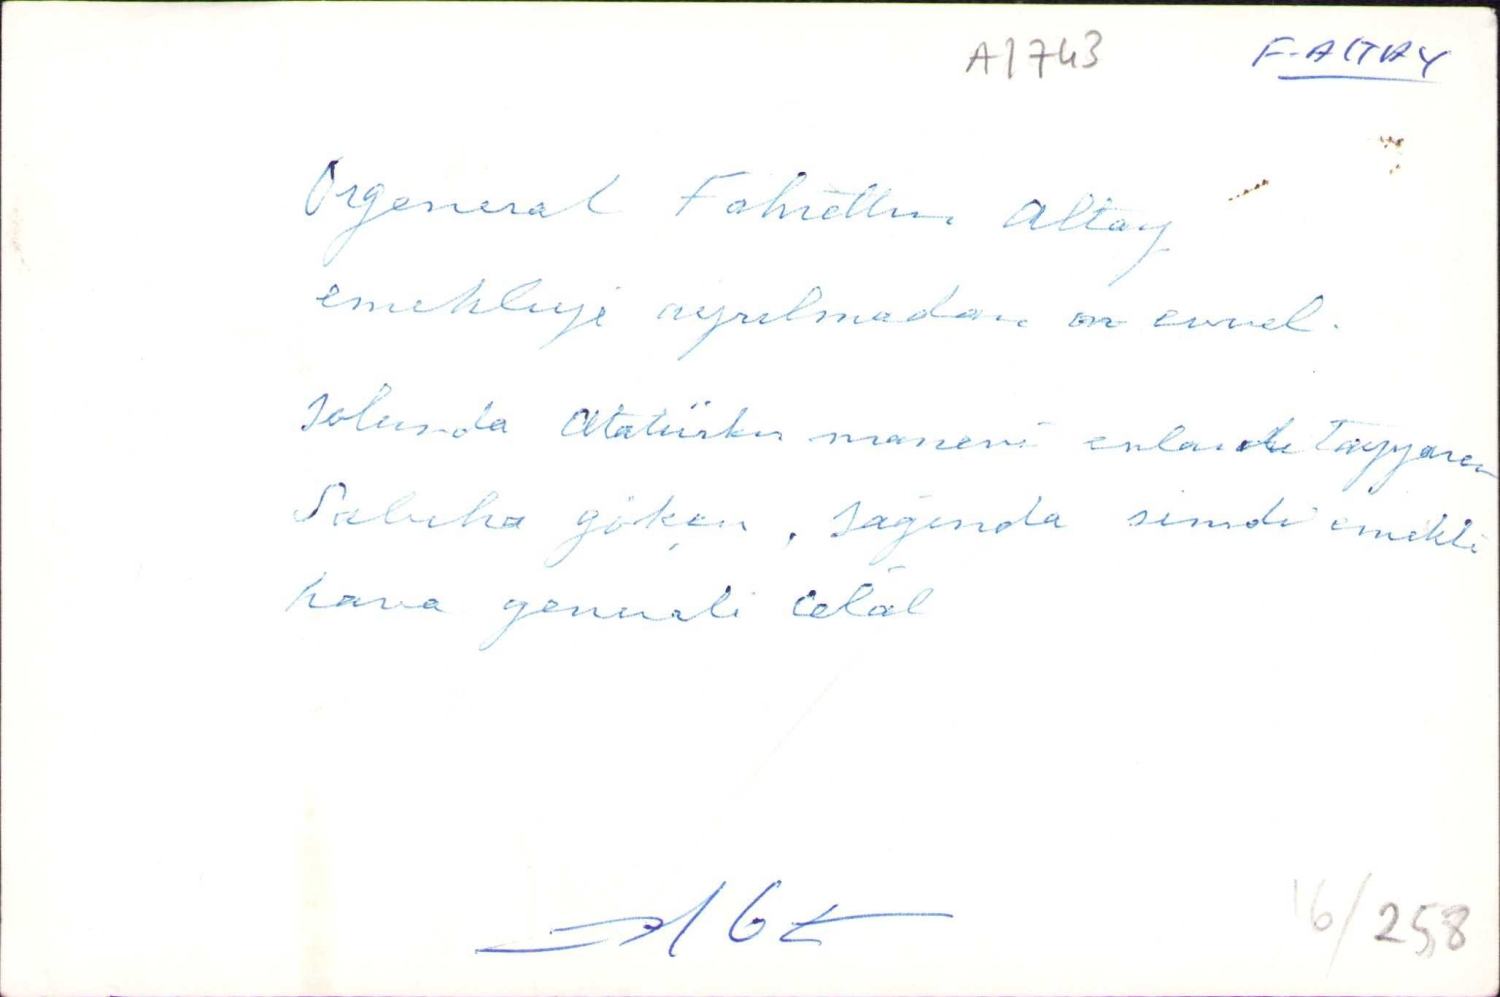 A1743
F-ALTAY
Orgeneral Fahrettin Altay
emekliye ayrılmadan evvel.
solunda Atatürkün manevi evladı Tayyareci
Sabiha gökçen, sağında simdi emekli
hava generali Celâl
16/258